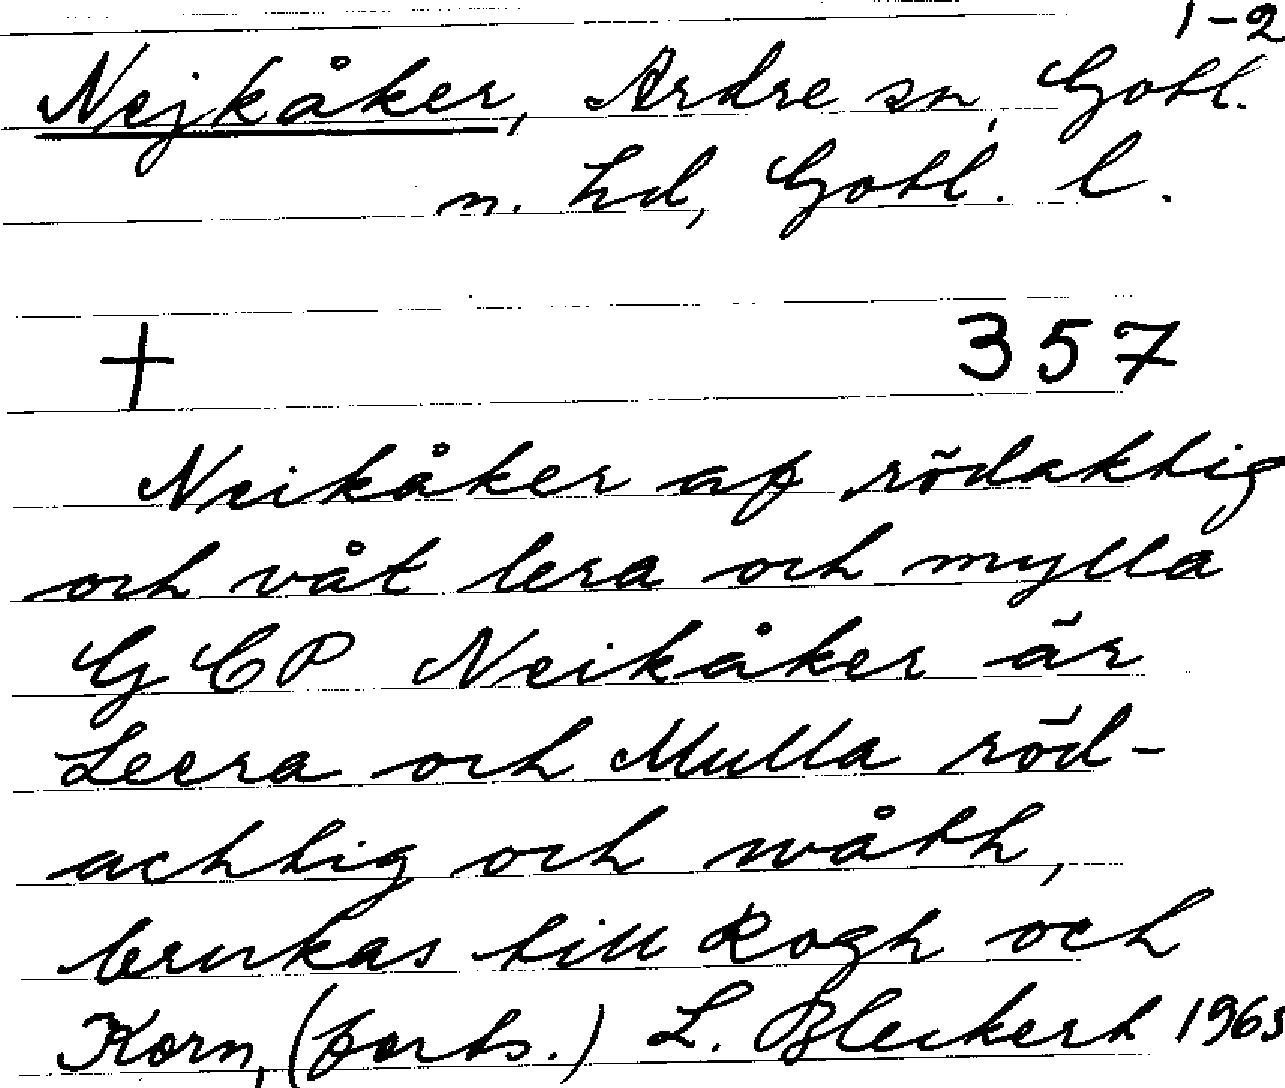 1-2
Nejkåker, Ardre sn, Gotl.
n. hd, Gotl. l.
† 357
Neikåker af rödaktig
och våt lera och mylla
GCP Neikåker är
Leera och Mulla röd-
achtig och wåth,
brukas till Rogh och
Korn, (forts.) L. Bleckert 1963